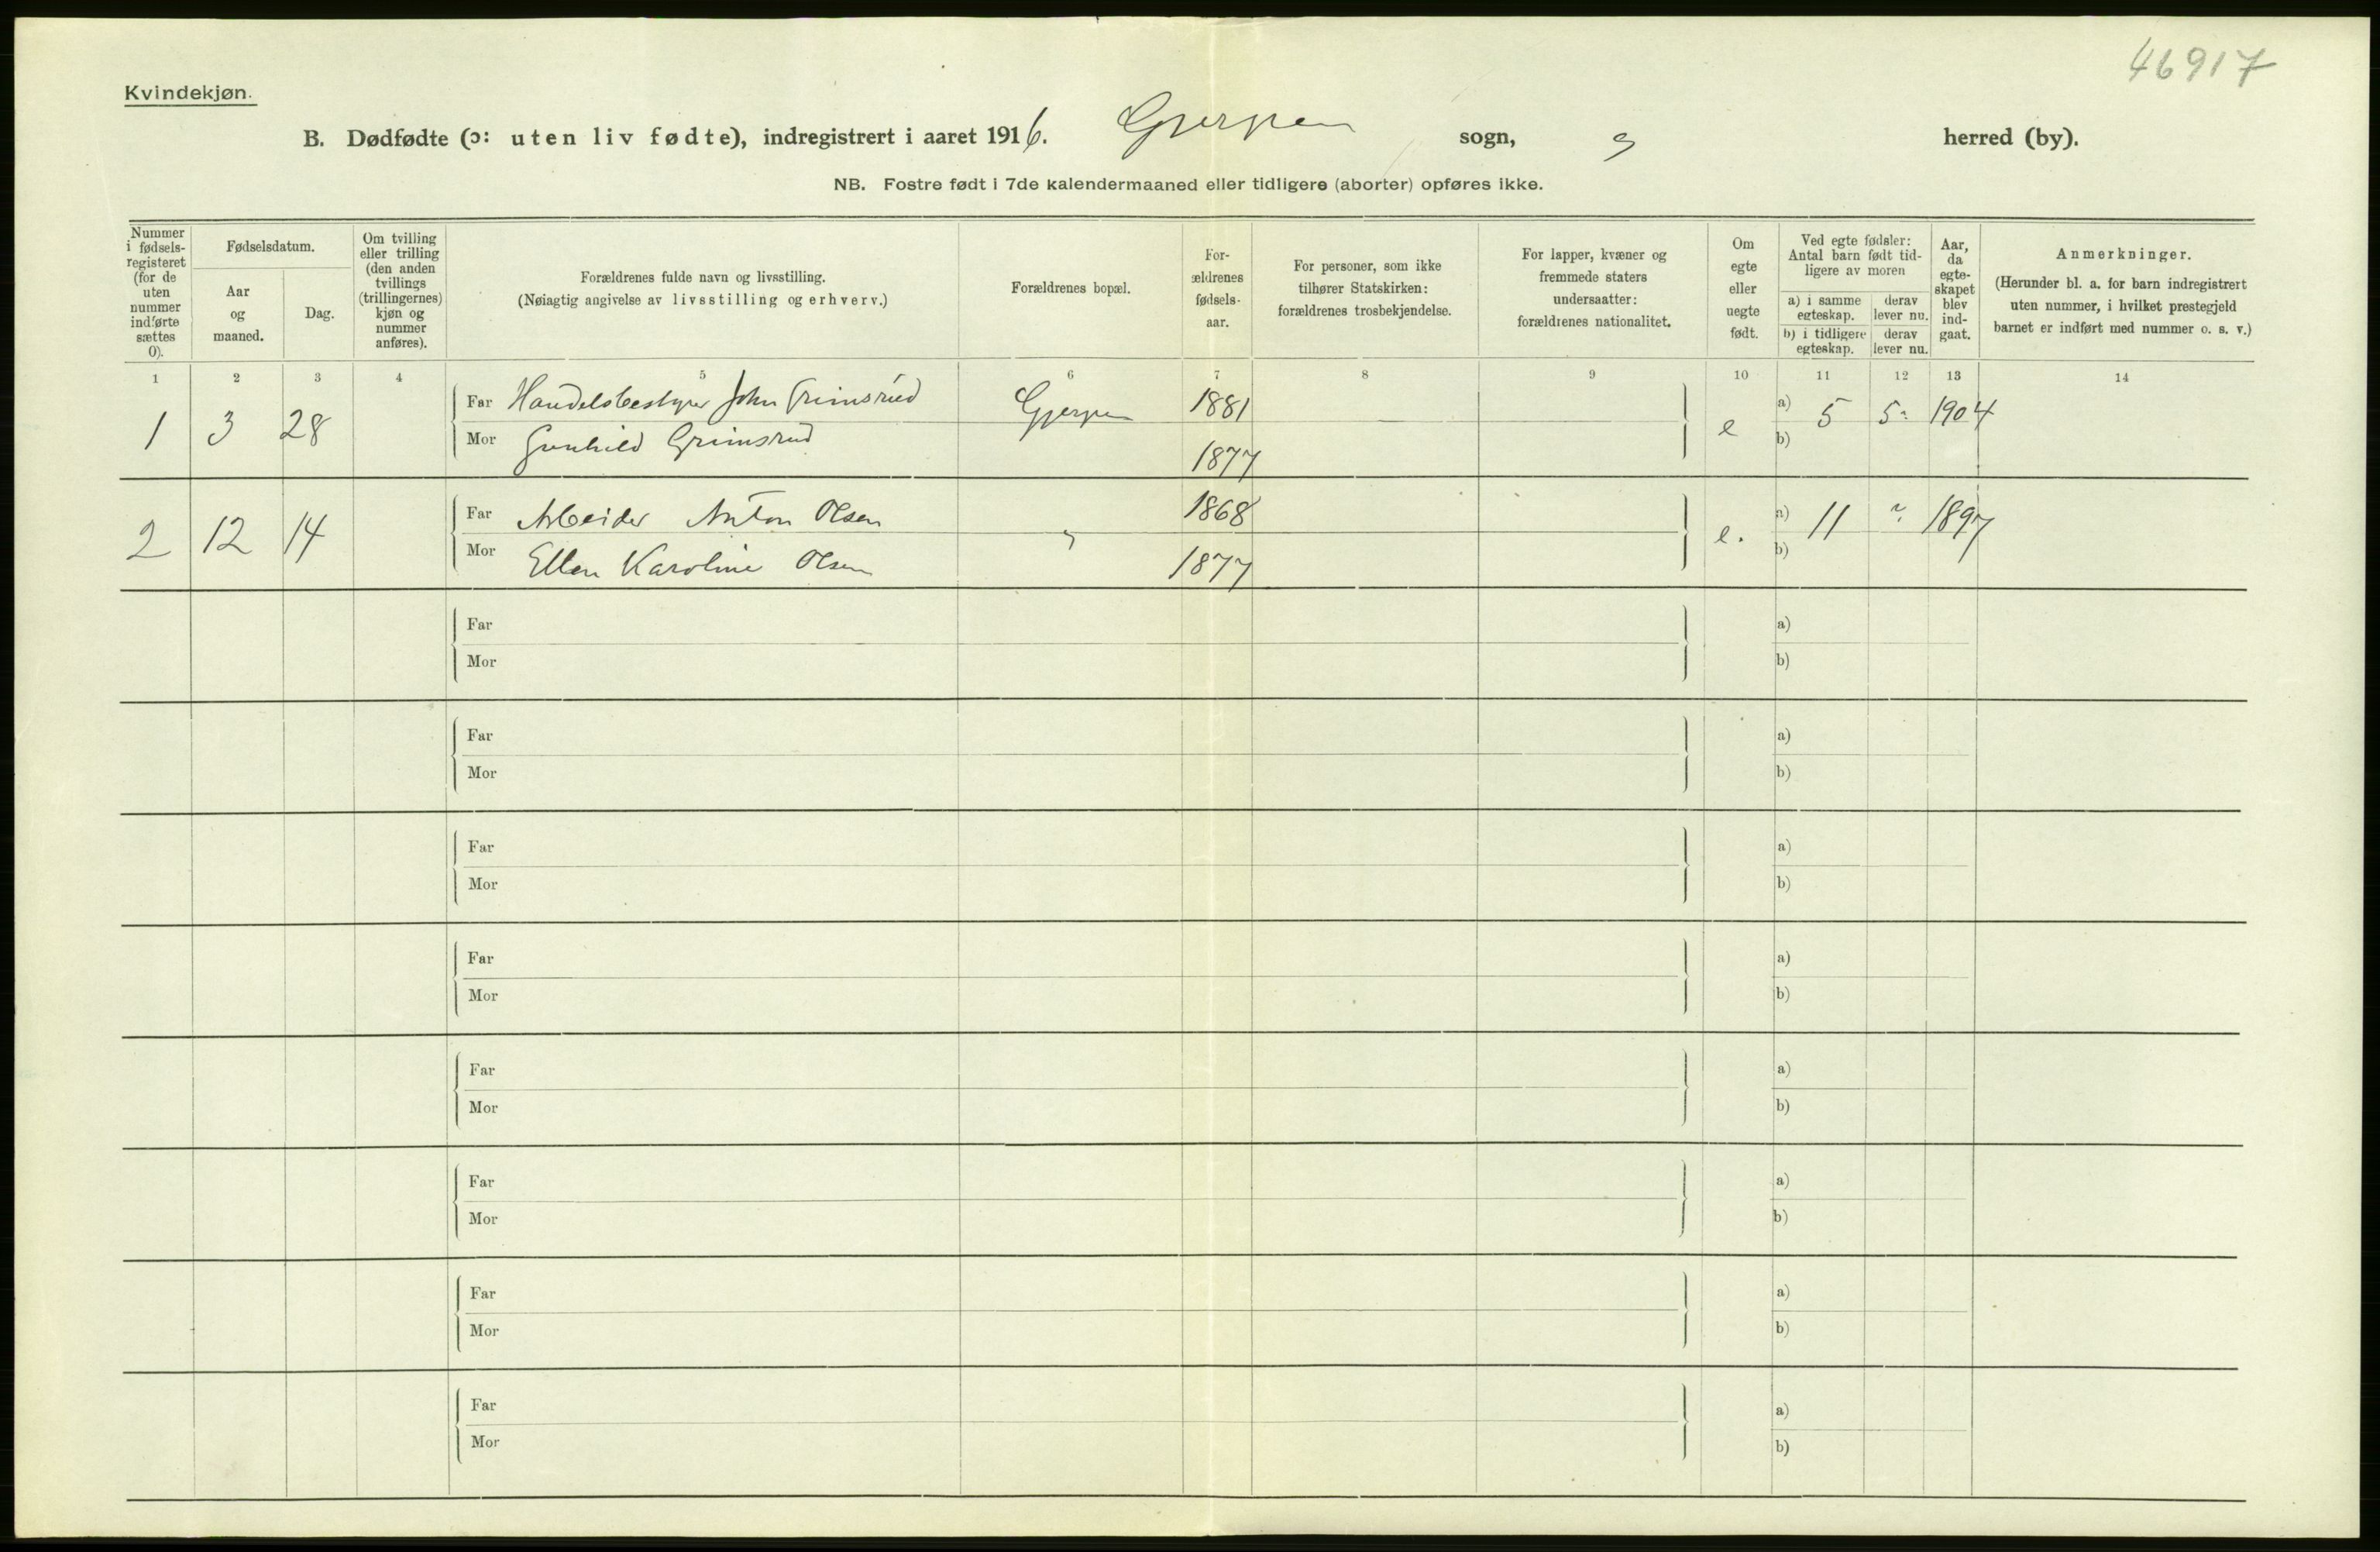 46917
Kvindekjøn.
B. Dødfødte (ɔ: uten liv fødte), indregistrert i aaret 1916. Gjerpen sogn, " herred (by).
NB. Fostre født i 7de kalendermaaned eller tidligere (aborter) opføres ikke.
Nummer i fødsels-registeret (for de uten nummer indførte sættes 0).
Fødselsdatum.
Aar og maaned.
Dag.
Om tvilling eller trilling (den anden tvillings (trillingernes) kjøn og nummer anføres).
Forældrenes fulde navn og livsstilling.
(Nøiagtig angivelse av livsstilling og erhverv.)
Forældrenes bopæl.
For-ældrenes fødsels-aar.
For personer, som ikke tilhører Statskirken: forældrenes trosbekjendelse.
For lapper, kvæner og fremmede staters undersaatter: forældrenes nationalitet.
Om egte eller uegte født.
Ved egte fødsler: Antal barn født tid-ligere av moren
a) i samme egteskap. derav lever nu.
b) i tidligere egteskap. derav lever nu.
Aar, da egte-skapet blev ind-gaat.
Anmerkninger.
(Herunder bl. a. for barn indregistrert uten nummer, i hvilket prestegjeld barnet er indført med nummer o. s. v.)
1 2 3 4 5 6 7 8 9 10 11 12 13 14
1 3 28 Far Handelsbestyrer John Grimsrud Gjerpen 1881 e a) 5 5 1904
Mor Gunhild Grimsrud 1877 b)
2 12 14 Far Arbeider Anton Olsen " 1868 e. a) 11 ? 1897
Mor Ellen Karoline Olsen 1877 b)
Far a)
Mor b)
Far a)
Mor b)
Far a)
Mor b)
Far a)
Mor b)
Far a)
Mor b)
Far a)
Mor b)
Far a)
Mor b)
Far a)
Mor b)